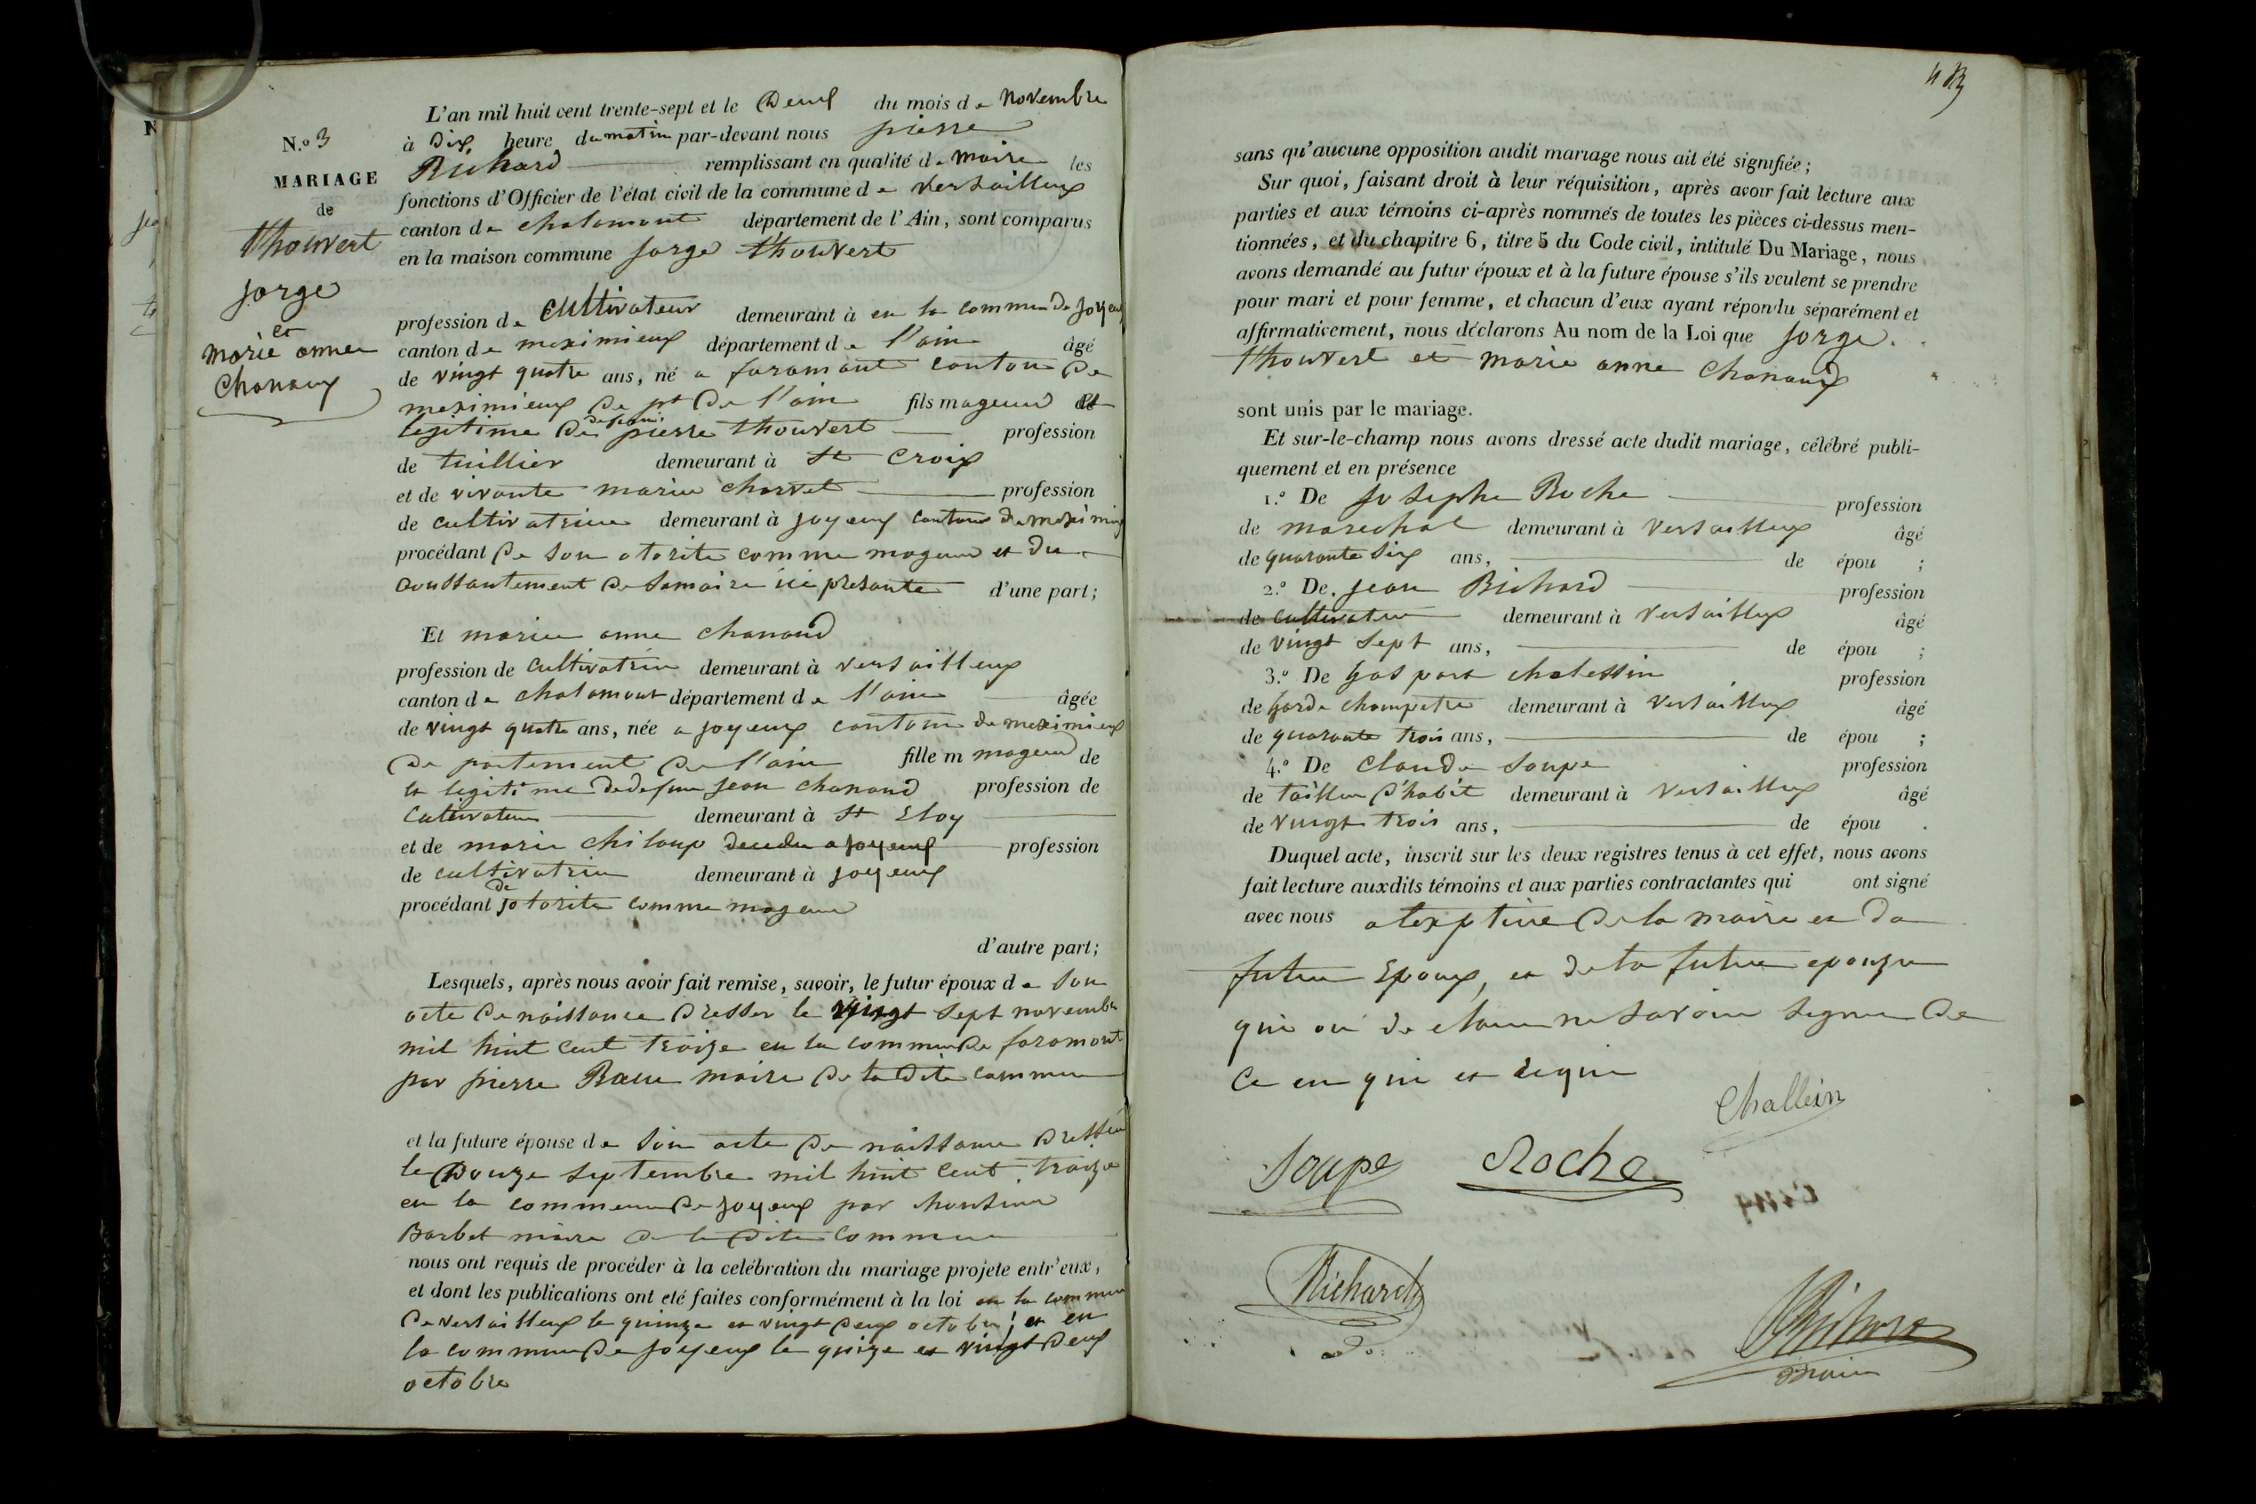 N.o 3
MARIAGE
de
Thouvert
jorge
et
marie anne
Chanaux
L'an mil huit cent trente-sept et le Deux du mois de Novembre
à Dix heure du matin par-devant nous pierre
Richard remplissant en qualité de maire les
fonctions d'Officier de l'état civil de la commune de Versailleux
canton de chalamont département de l'Ain, sont comparus
en la maison commune jorge thouvert
profession de Cultivateur demeurant à en la commun de joyeux
canton de meximieux département de l'ain âgé
de vingt quatre ans, né a faramant canton De
meximieux De pt De l'ain fils mageur et
legitime De defeun pierre thouvert profession
de tuillier demeurant à St Croix
et de vivante marie charvet profession
de cultivatrice demeurant à joyeux canton de meximieux
procédant De son otorite comme mageur et du
consantement De samaire ici presante d'une part;
Et marie anne chanaud
profession de cultivatrice demeurant à versailleux
canton de chalamont département de l'ain âgée
de vingt quatre ans, née a joyeux canton de meximieux
De partement De l'ain fille m mageur de
et legitime de defeun jean chanaud profession de
Cultivateur demeurant à St Eloy
et de marie chiloup decedee a joyeux profession
de cultivatrice demeurant à joyeux
procédant de so torite comme mageur
d'autre part;
Lesquels, après nous avoir fait remise, savoir, le futur époux de son
acte De naissance Dresser le vingt sept novembre
mil huit cent traize en la commun De faramant
par pierre maire De la Dite commune
et la future épouse de son acte De naissance Dresser
le Douze septembre mil huit cent traize
en la commune De joyeux par monsieur
Barbet maire De la Dite Commune
nous ont requis de procéder à la celébration du mariage projete entr'eux,
et dont les publications ont eté faites conformément à la loi en la commune
De versailleux le quinze et vingt Deux octobre, et en
la commune De joyeux le quize et vingt Deux
octobre
sans qu'aucune opposition audit mariage nous ait été signifiée;
Sur quoi, faisant droit à leur réquisition, après avoir fait lecture aux
parties et aux témoins ci-après nommés de toutes les pièces ci-dessus men-
tionnées, et du chapitre 6, titre 5 du Code civil, intitulé Du Mariage, nous
avons demandé au futur époux et à la future épouse s'ils veulent se prendre
pour mari et pour femme, et chacun d'eux ayant répondu séparément et
affirmativement, nous déclarons Au nom de la Loi que jorge
thouvert et marie anne Chanaud
sont unis par le mariage.
Et sur-le-champ nous avons dressé acte dudit mariage, célébré publi-
quement et en présence
1.o De josephe Roche profession
de marechal demeurant à Versailleux âgé
de quarante six ans, de épou ;
2.o De jean Richard profession
de cultivateur demeurant à Versailleux âgé
de vingt sept ans, de épou ;
3.o De gaspart chalessin profession
de garde champetre demeurant à Versailleux âgé
de quarante trois ans, de épou ;
4.o De claude soupe profession
de tailleur d'habit demeurant à Versailleux âgé
de vingt trois ans, de épou .
Duquel acte, inscrit sur les deux registres tenus à cet effet, nous avons
fait lecture auxdits témoins et aux parties contractantes qui ont signé
avec nous De la maire et da
futur Epoux, et de la future epouze
qui on declaire ne savoir signer De
Ce en qui et requi
Challein
Soupe Roche
Richard
Richard
maire